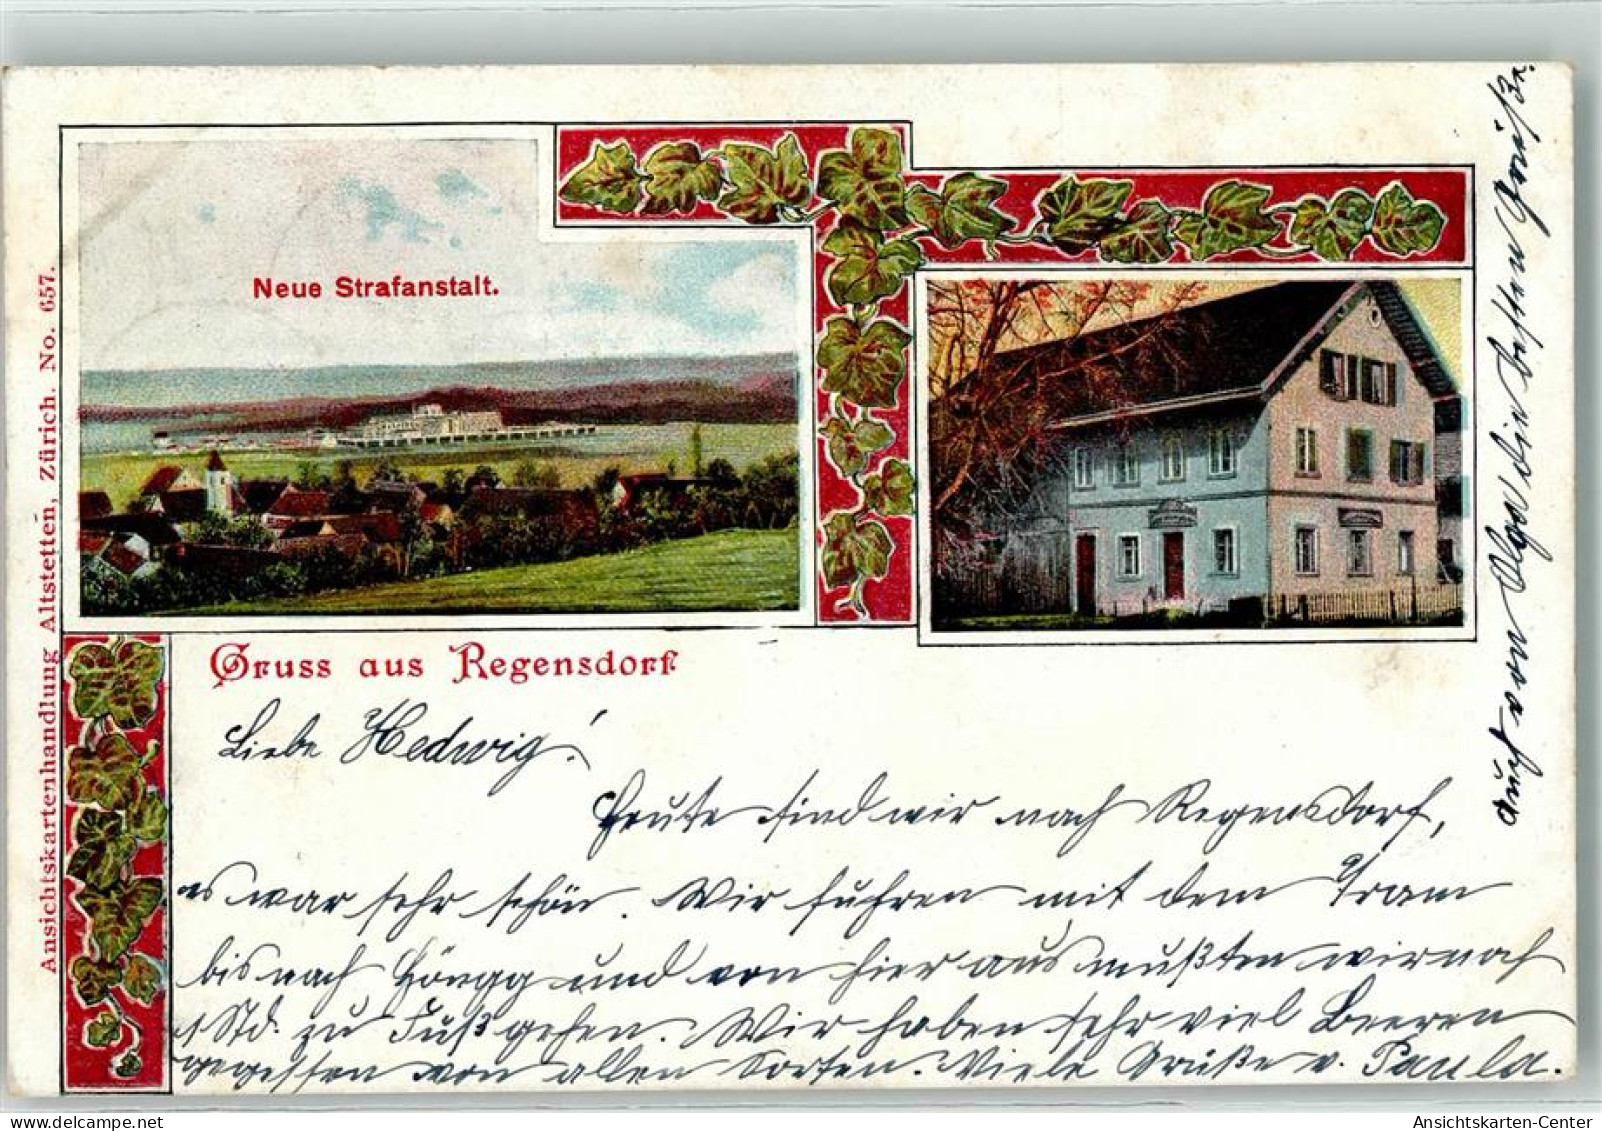 Neue Strafanstalt.
Gruss aus Regensdorf
Ansichtskartenhandlung Altstetten, Zürich. No. 657.
Liebe Hedwig!
Heute sind wir nach Regensdorf,
es war sehr schön. Wir fuhren mit dem Tram
bis nach Höngg und von hier aus mußten wir noch
1 Std. zu Fuß gehen. Wir haben sehr viel Beeren
gegessen von allen Sorten. Viele Grüße v. Paula.
auch von die besten Grüße.
Ansichtskarten-Center